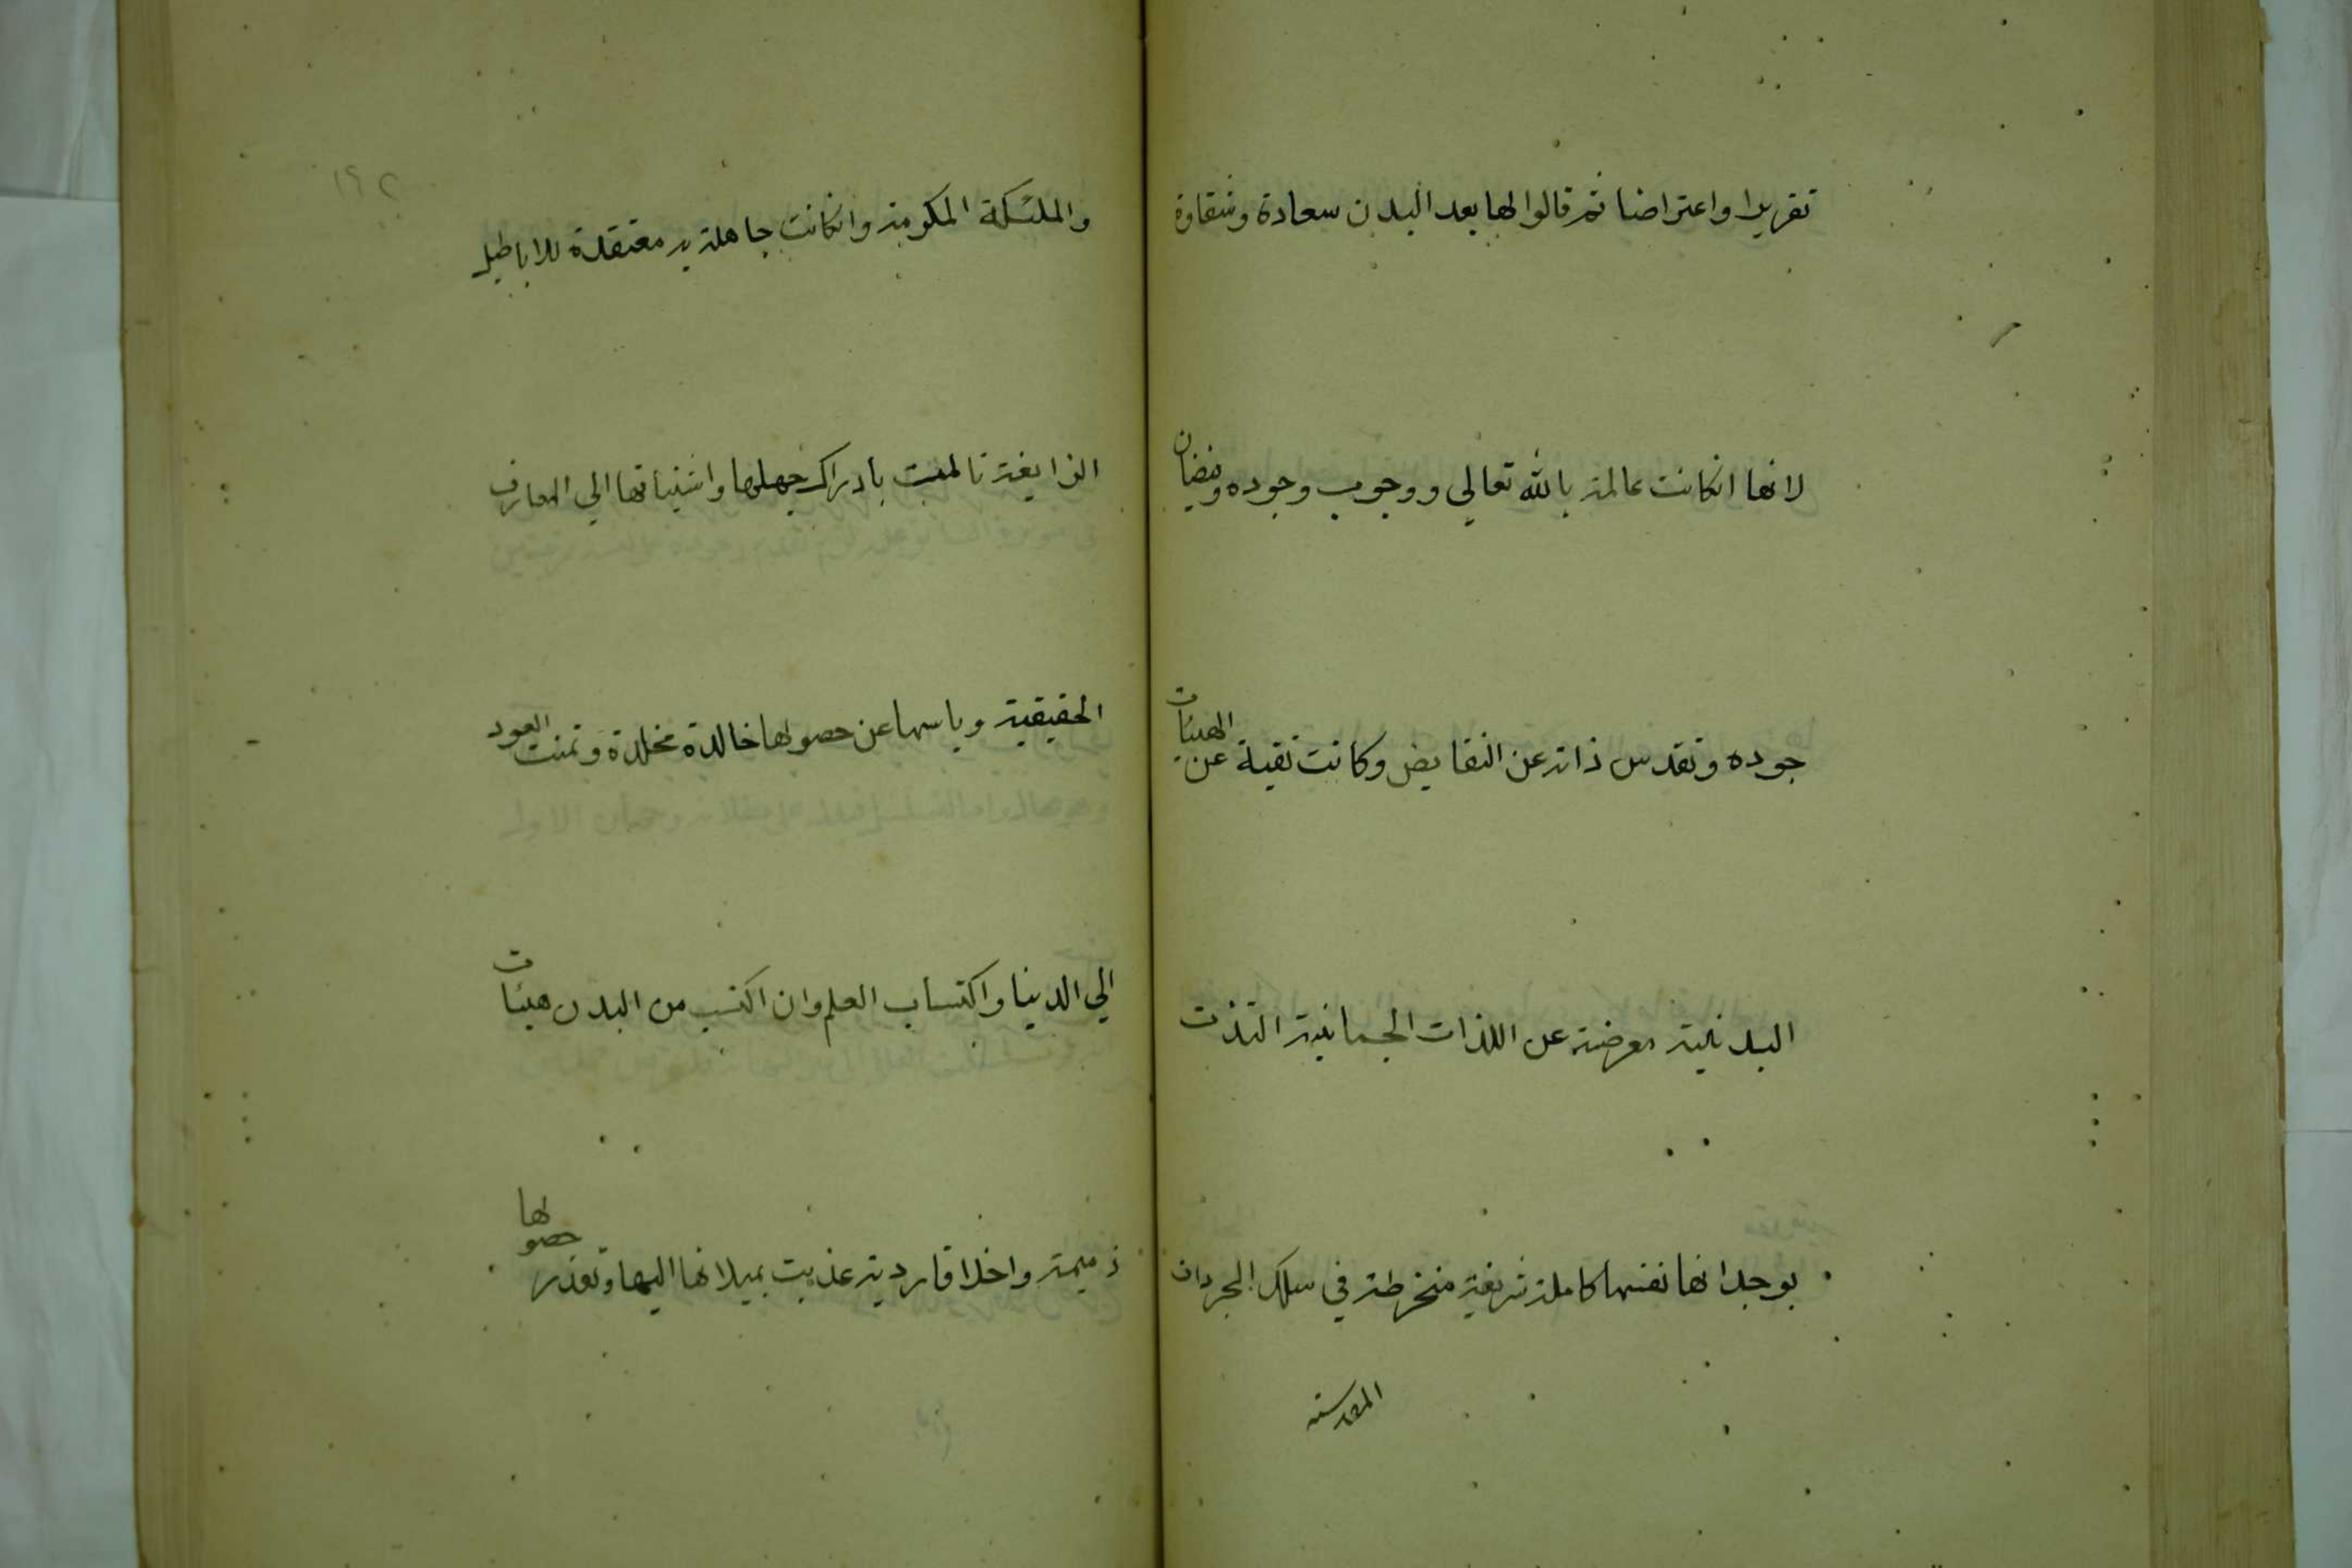 تقريرا واعتراضا ثم قالوا لها بعد البدن سعادة وشقاوة
لانها انكانت عالمة بالله تعالي ووجوب وجوده وفيضان
جوده وتقدس ذاته عن النقايض وكانت نقية عن الهيئات
البدنية معرضة عن اللذات الجسمانية التذت
بوجدانها نفسها كاملة شريفة منخرطة في سلك المجردات
المقدسة
١٩٢
والملئكة المكرمة وانكانت جاهلة به معتقدة للاباطيل
الزايغة تالمت بادراك جهلها واشتياقها الي المعارف
الحقيقية وياسها عن حصولها خالدة مخلدة وتمنت العود
الي الدينا واكتساب العلم وان اكتسب من البدن هيئات
ذميمة واخلاقا ردية عذبت بميلانها اليها وتعذر حصولها